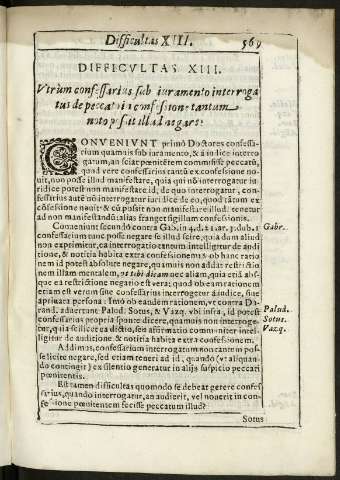 Difficultas XIII. 569
DIFFICULTAS XIII.
Vtrùm confessarius sub iuramento interroga
tus de peccato in confessione tantum
noto possit illud negare?
CONVENIVNT primò Doctores confessa-
rium quamuis sub iuramento, & à iudice interro-
gatum, an sciat pœnitentem commisisse peccatũ,
quod vere confessarius tantũ ex confessione no-
uit, non posse illud manifestare, quia qui nõ interrogatur iu-
ridice potest non manifestare id, de quo interrogatur, con-
fessarius autẽ nõ interrogatur iuridice de eo, quod tãtum ex
cõfessione nouit: & cũ possit non manifestare illud, tenetur
ad non manifestandũ: alias franget sigillum confessionis.
Conueniunt secundò contra Gab. in 4. d. 21. ar. 3. dub. 1 Gabr.
confessarium tunc posse negare se illud scire, quia dum aliud
non exprimitur, ea interrogatio tantum intelligitur de audi-
tione, & notitia habita extra confessionem: ob hanc ratio
nem id potest absolute negare, quamuis non addat restrictio
nem illam mentalem, vt tibi dicam nec aliam, quia etiã abs-
que ea restrictione negatio est vera; quod ob eam rationem
etiam est verum siue confessarius interrogetur à iudice, siue
a priuata persona: Imò ob eandem rationem, vt contra Du-
rand. aduertunt Palud. Sotus, & Vazq. vbi infra, id potest Palud.
confessarius propria sponte dicere, quamuis non interroge- Sotus.
tur, quia scilicet ea dictio, seu affirmatio communiter intel- Vazq.
ligitur de auditione & notitia habita extra confessionem.
Addimus, confessarium interrogatum non tantum pos-
se licite negare, sed etiam teneri ad id, quando (vt aliquan-
do contingit) ex silentio generatur in alijs suspicio peccati
pœnitentis.
Est tamen difficultas quomodo se debeat gerere confes
sarius, quando interrogatur, an audierit, vel nouerit in con-
fessione pœnitentem fecisse peccatum illud?
Sotus